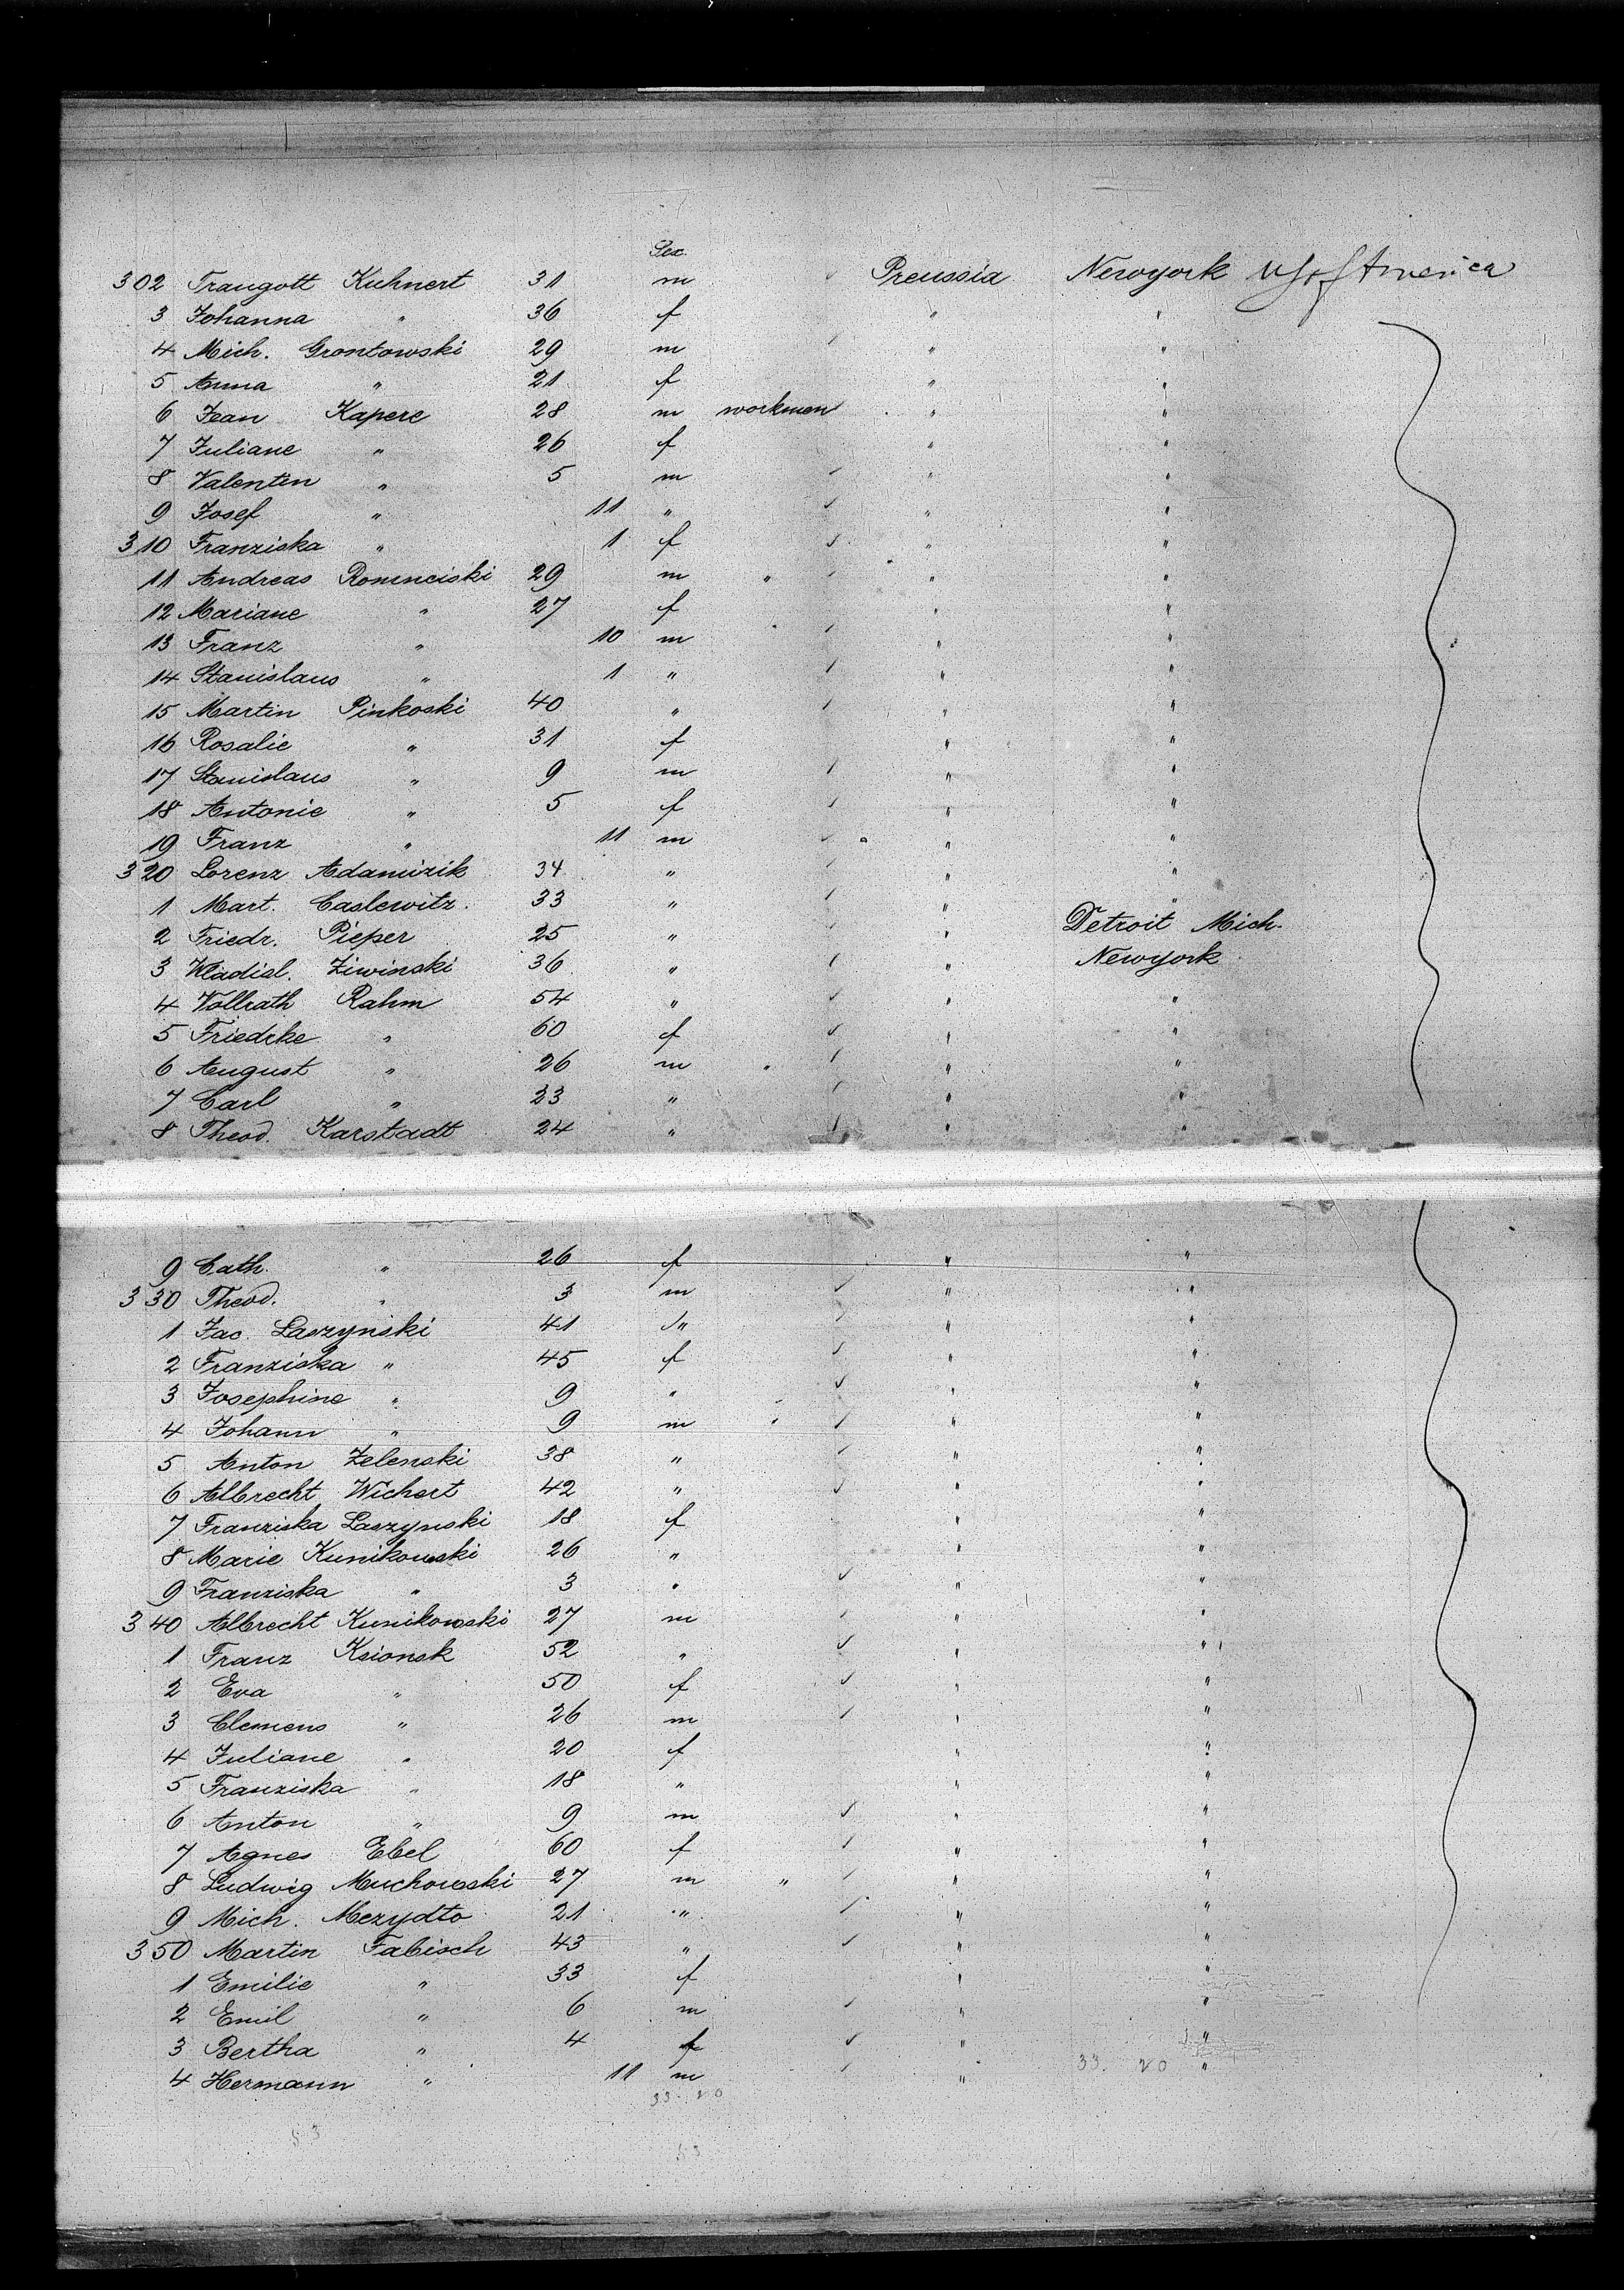 Sex.
302 Traugott Kuhnert 31 m Preussia Newyork US of America
3 Johanna " 36 f " "
4 Mich. Grontowski 29 m " "
5 Anna " 21 f " "
6 Jean Kapere 28 m workmen " "
7 Juliane " 26 f " "
8 Valentin " 5 m " "
9 Josef " 11 " " "
310 Franziska " 1 f " "
11 Andreas Romnciski 29 m " " "
12 Mariane " 27 f " "
13 Franz " 10 m " "
14 Stanislaus " 1 " " "
15 Martin Pinkoski 40 " " "
16 Rosalie " 31 f " "
17 Stanislaus " 9 m " "
18 Antonie " 5 f " "
19 Franz " 11 m " "
320 Lorenz Adamizik 34 " " "
1 Mart. Caslewitz. 33 " " "
2 Friedr. Pieper 25 " " Detroit Mich.
3 Wladisl. Ziwinski 36 " " Newyork
4 Vollrath Rahm 54 " " "
5 Friedrke " 60 f " "
6 August " 26 m " " "
7 Carl " 23 " " "
8 Theod. Karstadt 24 " " "
9 Cath. " 26 f " "
330 Theod. " 3 m " "
1 Jac. Laszynski 41 " " "
2 Franziska " 45 f " "
3 Josephine " 9 " " "
4 Johann " 9 m " " "
5 Anton Zelenski 38 " " "
6 Albrecht Wichert 42 " " "
7 Franziska Laszynski 18 f " "
8 Marie Kunikowski 26 " " "
9 Franziska " 3 " " "
340 Albrecht Kunikowski 27 m " "
1 Franz Ksionsk 52 " " "
2 Eva " 50 f " "
3 Clemens " 26 m " "
4 Juliane " 20 f " "
5 Franziska " 18 " " "
6 Anton " 9 m " "
7 Agnes Ebel 60 f " "
8 Ludwig Muchowski 27 m " " "
9 Mich. Mezydto 21 " " "
350 Martin Fabisch 43 " " "
1 Emilie " 33 f " "
2 Emil " 6 m " "
3 Bertha " 4 f " "
4 Hermann " 11 m " 33. 20 "
33. 20
53
53